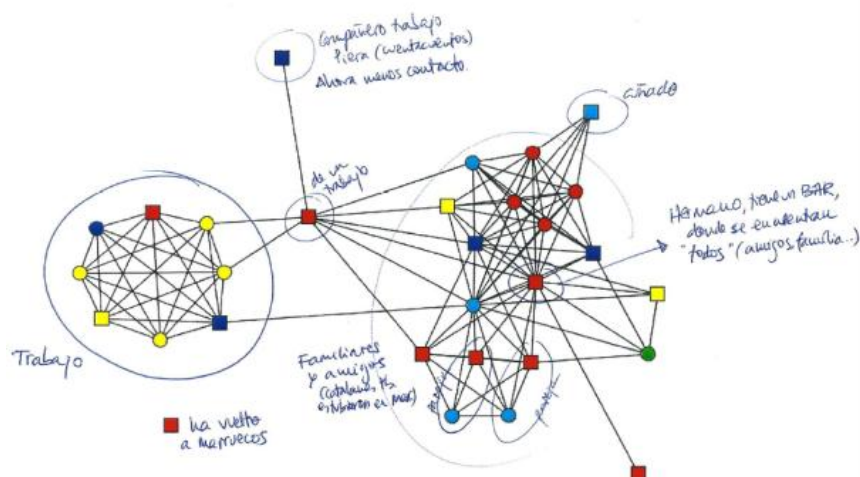 Compañero trabajo
Piera (cuentacuentos)
Ahora menos contacto.
cuñado
de un
trabajo
Hermano, tiene un BAR,
donde se encuentran
"todos" (amigos, familia...)
Trabajo
Familiares
y amigos
(catalanes
estuvieron en
pareja
ha vuelto
a marruecos